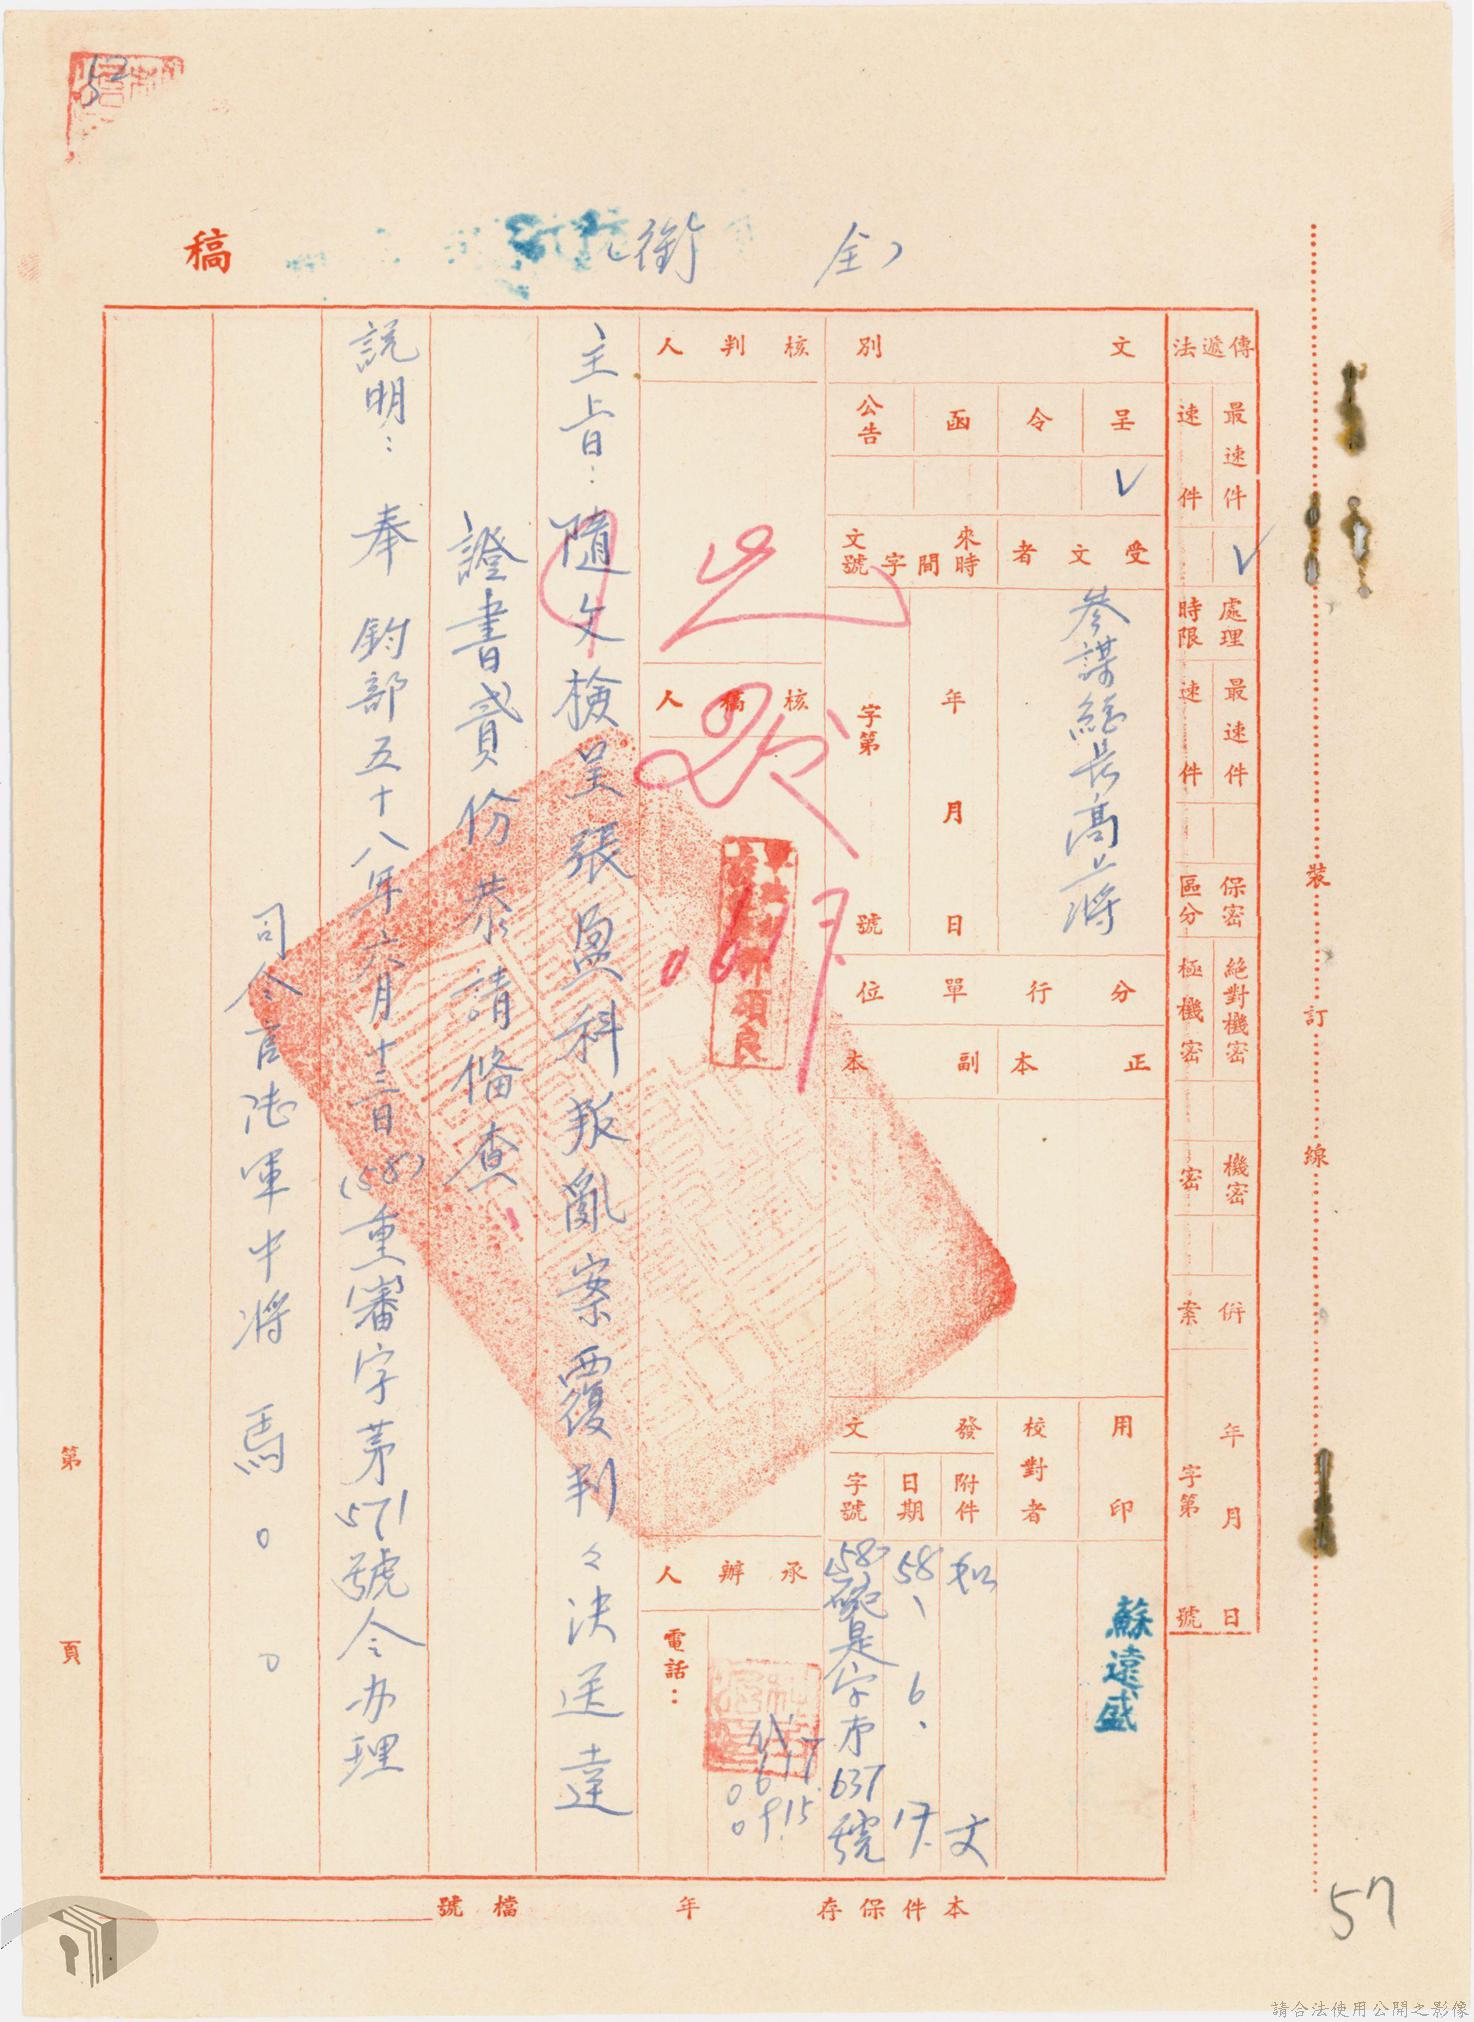 稿
(全銜)
傳遞法
最速件
速件
處理時限
最速件
速件
保密區分
絕對機密
極機密
機密
密
併案
年 月 日
字第 號
文別
呈
令
函
公告
受文者
參謀總長高上將
來文時間字號
年 月 日
字第 號
分行單位
正本
副本
用印
蘇遠盛
校對者
發文
附件
如文
日期
58、6、17.
字號
(58)
是字第637號
核判人
核稿人
承辦人
電話：
0617
0915
主旨：隨文檢呈張盈科叛亂案覆判々決送達
證書貳份恭請備查
說明：奉 鈞部五十八年六月十三日(58)重審字第571號令办理
司令官陸軍中將 馬。。
第 頁
本件保存 年 檔號
裝訂線
52
57
請合法使用公開之影像